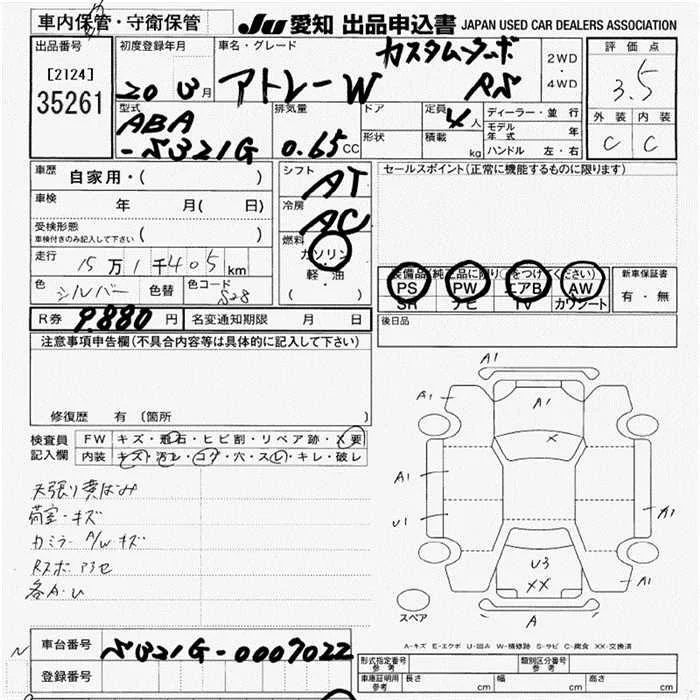 車内保管・守衛保管
JU 愛知 出品申込書 JAPAN USED CAR DEALERS ASSOCIATION
出品番号
[2124]
35261
初度登録年月
20 3月
車名・グレード
アトレーW
カスタムターボ
RS
2WD
・
4WD
評価点
3.5
外装 内装
C C
型式
ABA
-S321G
排気量
0.65 CC
ドア
形状
定員 4人
積載 kg
ディーラー・並行
モデル年式 年
ハンドル 左・右
車歴 自家用・( )
車検 年 月( 日)
受検形態
車検付きのみ記入して下さい ( )
走行 15万1千405km
色 シルバー 色替 色コード S28
シフト AT
冷房 AC
燃料 ガソリン
・
軽・油
( )
セールスポイント(正常に機能するものに限ります)
装備品(純正品に限り○をつけてください)
PS PW エアB AW
SR ナビ TV カワシート
新車保証書
有・無
R券 9,880円 名変通知期限 月 日
後日品
注意事項申告欄(不具合内容等は具体的に記入して下さい)
修復歴 有 (箇所 )
検査員
記入欄
FW キズ・飛石・ヒビ割・リペア跡・X要
内装 キズ・汚レ・コゲ・穴・スレ・キレ・破レ
天張り黄ばみ
荷室・キズ
カミラー A/Wキズ
各A・U
A1
A1
A1
X
A1
U1
A1
U3
XX
A1
A
スペア
A-キズ E-エクボ U-凹み W-補修跡 S-サビ C-腐食 XX-交換済
車台番号 S321G-0007022
登録番号
形式指定番号
参考
類別区分番号
参考
車庫証明用
参考
長さ cm 幅 cm 高さ cm